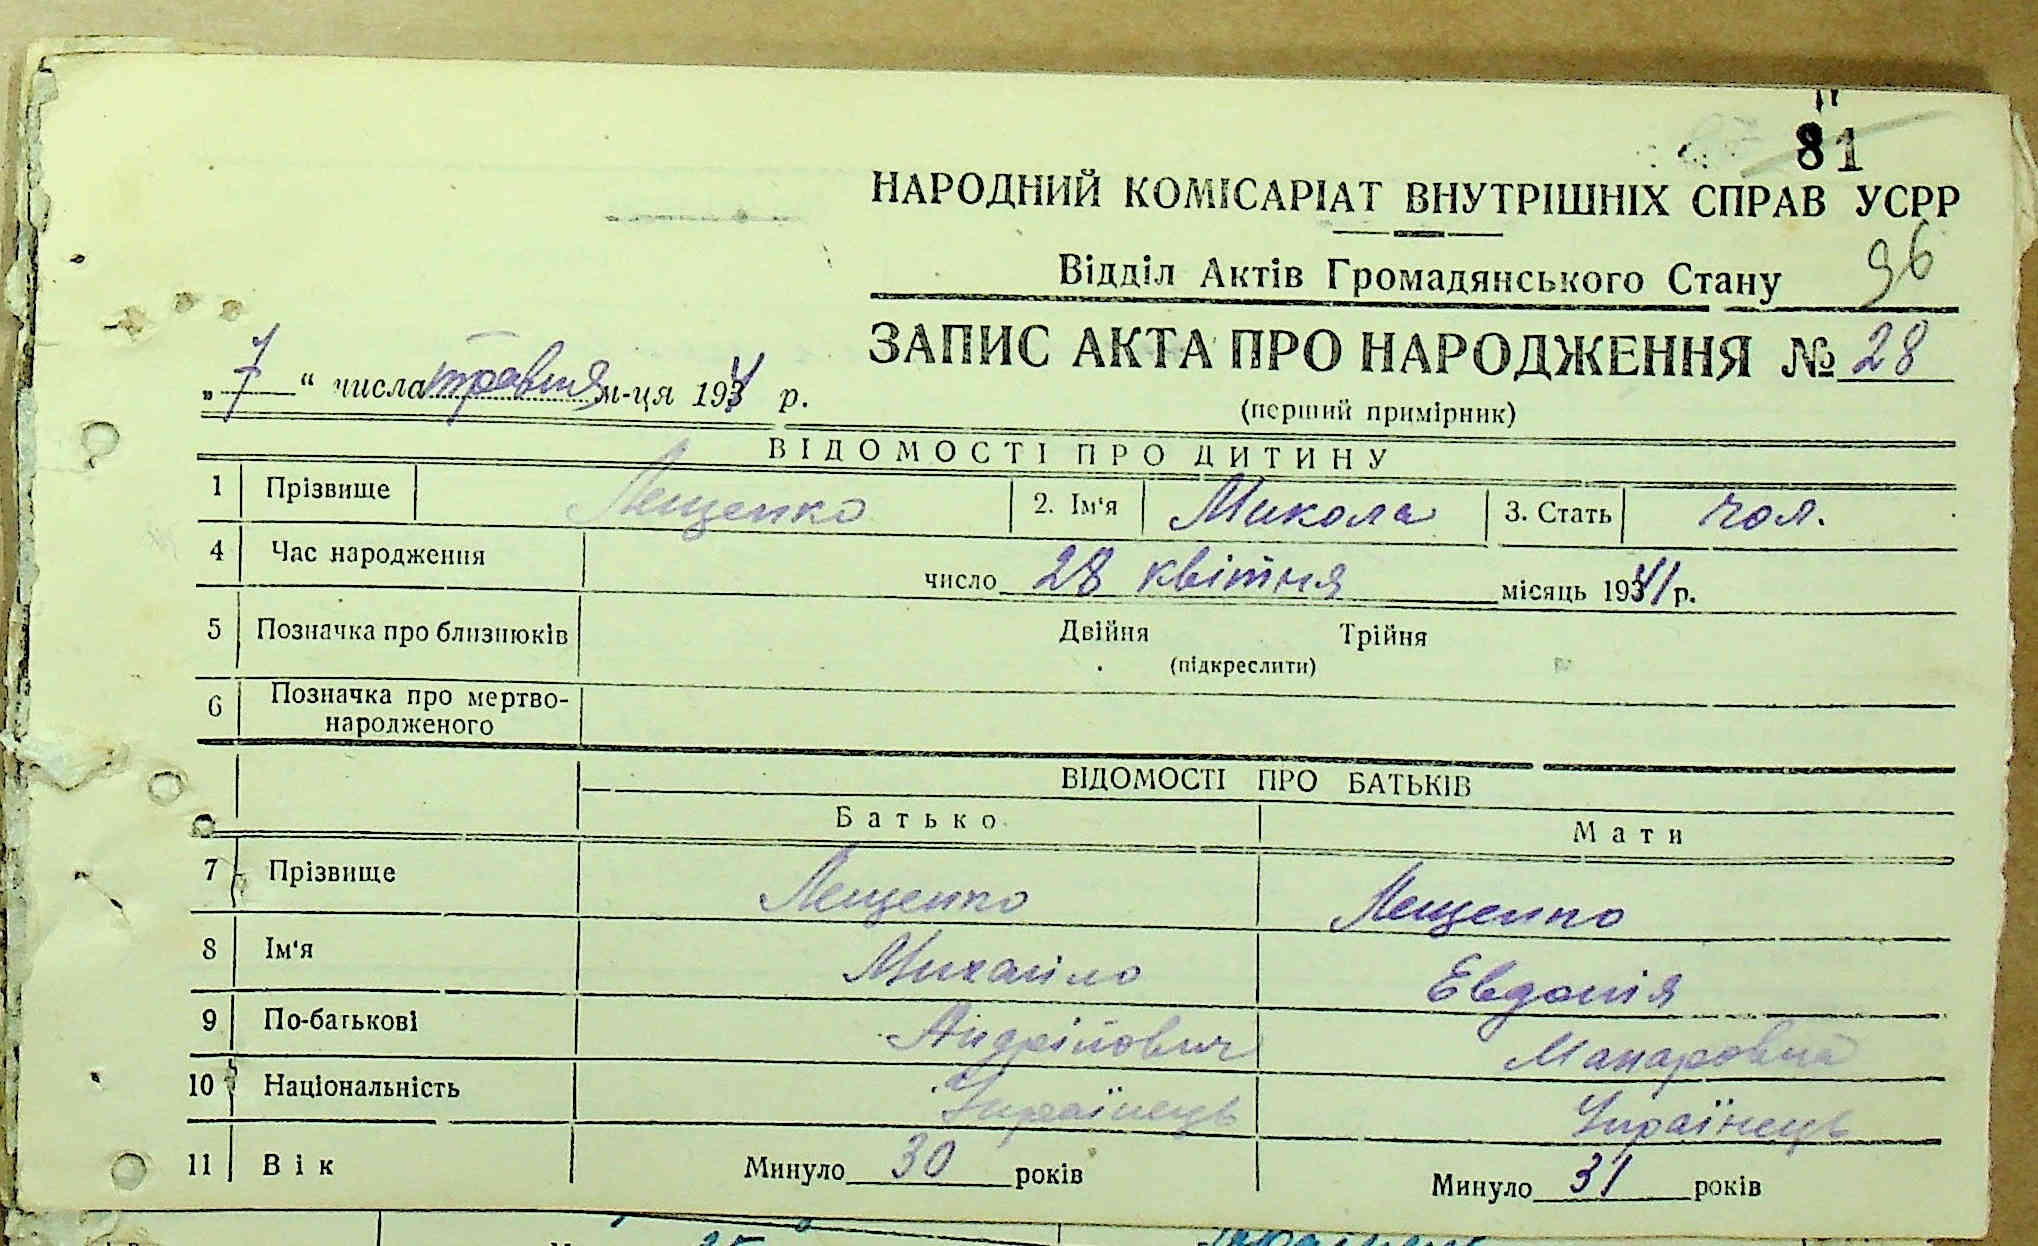 81
НАРОДНИЙ КОМІСАРІАТ ВНУТРІШНІХ СПРАВ УСРР
Відділ Актів Громадянського Стану 96
ЗАПИС АКТА ПРО НАРОДЖЕННЯ № 28
„ 7 “ числа травня м-ця 1934 р.
(перший примірник)
ВІДОМОСТІ ПРО ДИТИНУ
1 Прізвище Лещенко 2. Ім'я Микола 3. Стать чол.
4 Час народження число 28 квітня місяць 19341 р.
5 Позначка про близнюків Двійня Трійня
(підкреслити)
6 Позначка про мертво-
народженого
ВІДОМОСТІ ПРО БАТЬКІВ
Батько Мати
7 Прізвище Лещенко Лещенко
8 Ім'я Михайло Евдокія
9 По-батькові Андрійович Макаровна
10 Національність Українець Українець
11 Вік Минуло 30 років Минуло 31 років